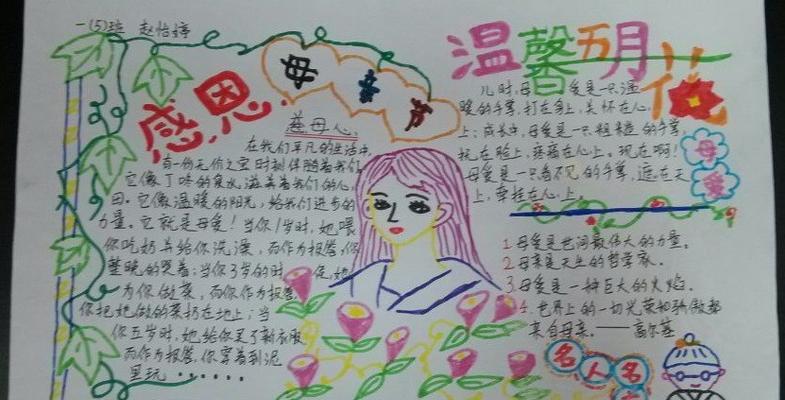 一(5)班 赵怡婷
感恩
母亲节
慈母心
在我们平凡的生活中,
有一份无价之宝时刻伴随着我们,
它像丁咚的泉水,滋养着我们的心
田。它像温暖的阳光,给我们进步的
力量。它就是母爱!当你1岁时,她喂
你吃奶并给你洗澡,而作为报答,你
整晚的哭着;当你3岁的时 候,她
为你做菜,而你作为报答,
你把她做的菜扔在地上;当
你五岁时,她给你买了新衣服
而作为报答,你穿着到泥
里玩……
温馨五月花
儿时,母 爱是一只温
暖的手掌,打在身上,关怀在心
上;成长中,母爱是一只粗糙的手掌,
抚在脸上,疼痛在心上。现在啊!
母爱是一只看不见的手掌,遮在天
上,牵挂在心上。
母爱
1 母爱是世间最伟大的力量。
2 母亲是天生的哲学家。
3 母爱是一种巨大的火焰。
4 世界上的一切光荣和骄傲都
来自母亲。——高尔基
名人名